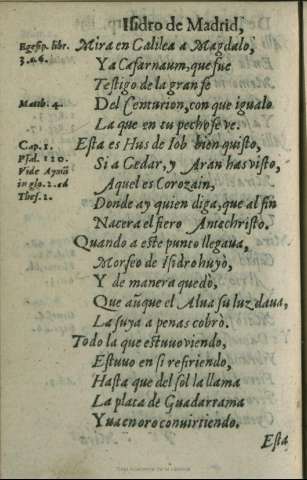 Isidro de Madrid,
Egesip. libr. 3. c. 6.
Mira en Galilea a Magdalo,
Ya Cafarnaum, que fue
Testigo de la gran fe
Matth. 4.
Del Centurion, con que igualo
La que en tu pecho se ve.
Cap. 1.
Psal. 120.
Vide Aymũ
in glo. 2. ad
Thes. 2.
Esta es Hus de Iob bien quisto,
Si a Cedar, y Aran has visto,
Aquel es Corozain,
Donde ay quien diga, que al fin
Nacera el fiero Antechristo.
Quando a este punto llegaua,
Morfeo de Isidro huyò,
Y de manera quedò,
Que aũque el Alua su luz daua,
La suya a penas cobrò.
Todo la que estuuo viendo,
Estuuo en si refiriendo,
Hasta que del sol la llama
La plata de Guadarrama
Yua en oro conuirtiendo.
Esta
Real Academia de la Lengua